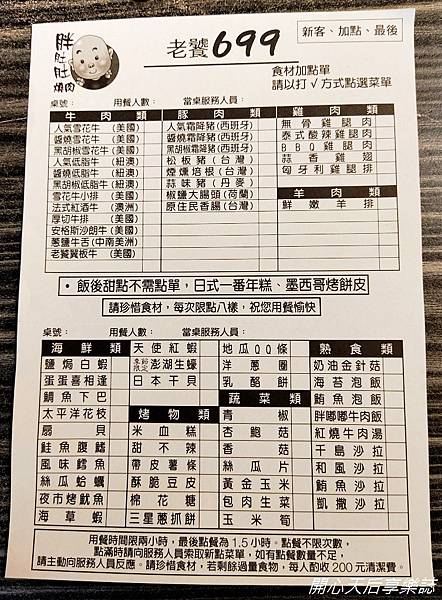 胖肚肚燒肉
老饕699
新客、加點、最後
食材加點單
請以打 √ 方式點選菜單
桌號: 用餐人數: 當桌服務人員:
牛肉類
人氣雪花牛 (美國)
醬燒雪花牛 (美國)
黑胡椒雪花牛 (美國)
人氣低脂牛 (紐澳)
醬燒低脂牛 (紐澳)
黑胡椒低脂牛 (紐澳)
雪花牛小排 (美國)
法式紅酒牛 (澳洲)
厚切牛排 (美國)
安格斯沙朗牛 (美國)
蔥鹽牛舌 (中南美洲)
老饕翼板牛 (美國)
豚肉類
人氣霜降豬 (西班牙)
醬燒霜降豬 (西班牙)
黑胡椒霜降豬 (西班牙)
松板豬 (台灣)
煙燻培根 (台灣)
蒜味豬 (丹麥)
椒鹽大腸頭 (荷蘭)
原住民香腸 (台灣)
雞肉類
無骨雞腿肉
泰式酸辣雞腿肉
BBQ雞腿肉
蒜香雞翅
匈牙利雞腿排
羊肉類
鮮嫩羊排
• 飯後甜點不需點單,日式一番年糕、墨西哥烤餅皮
請珍惜食材,每次限點八樣,祝您用餐愉快
桌號: 用餐人數: 當桌服務人員:
海鮮類
鹽焗白蝦
蛋蛋喜相逢
鯛魚下巴
太平洋花枝
扇貝
鮭魚腹鰭
風味鱈魚
絲瓜蛤蠣
夜市烤魷魚
海草蝦
天使紅蝦
季節限定澎湖生蠔
日本干貝
烤物類
米血糕
甜不辣
帶皮薯條
酥脆豆皮
棉花糖
三星蔥抓餅
地瓜QQ條
洋蔥圈
乳酪餅
蔬菜類
青椒
杏鮑菇
香菇
絲瓜片
黃金玉米
包肉生菜
玉米筍
熟食類
奶油金針菇
海苔泡飯
鮪魚泡飯
胖嘟嘟牛肉飯
紅燒牛肉湯
千島沙拉
和風沙拉
鮪魚沙拉
凱撒沙拉
用餐時間限兩小時,最後點餐為 1.5 小時。點餐不限次數,
點滿時請向服務人員索取新點菜單,如有點餐數量不足,
請主動向服務人員反應。請珍惜食材,若剩餘過量食物,每人酌收 200 元清潔費。
開心天后享樂誌